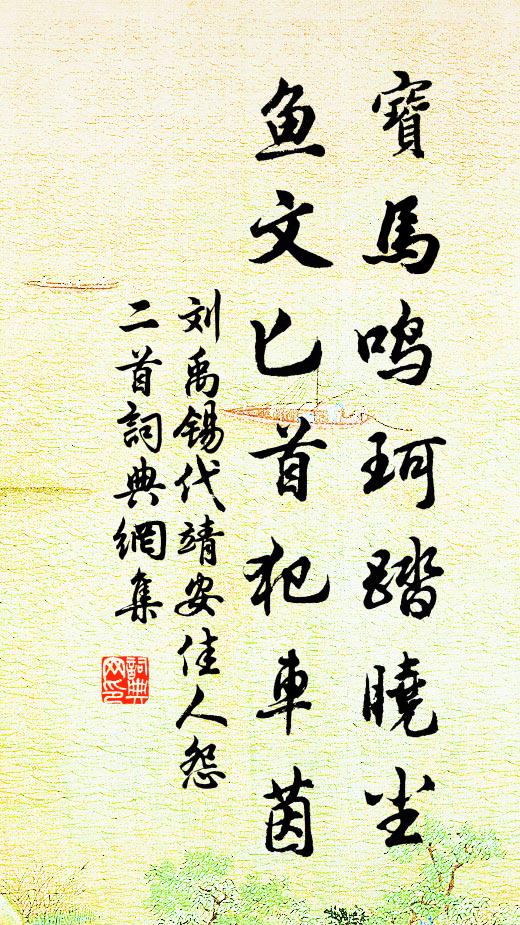 寶馬鸣珂踏曉尘
鱼文匕首犯車茵
刘禹锡代靖安佳人怨
二首詞典網集
詞典
网印